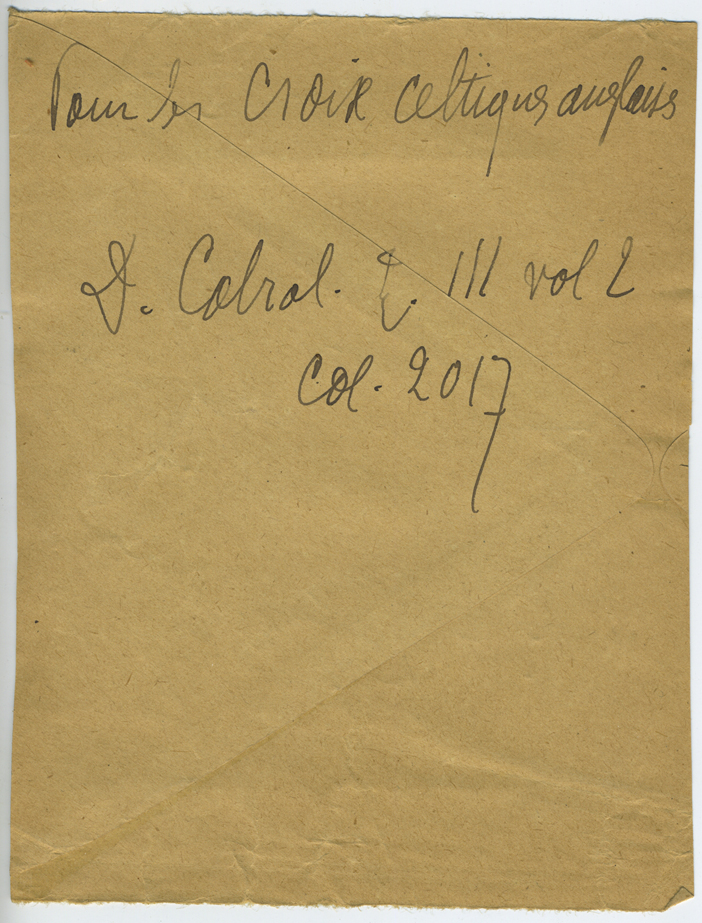 Pour les Croix celtiques anglaises
D. Cabrol. T. III vol 2
col. 2017